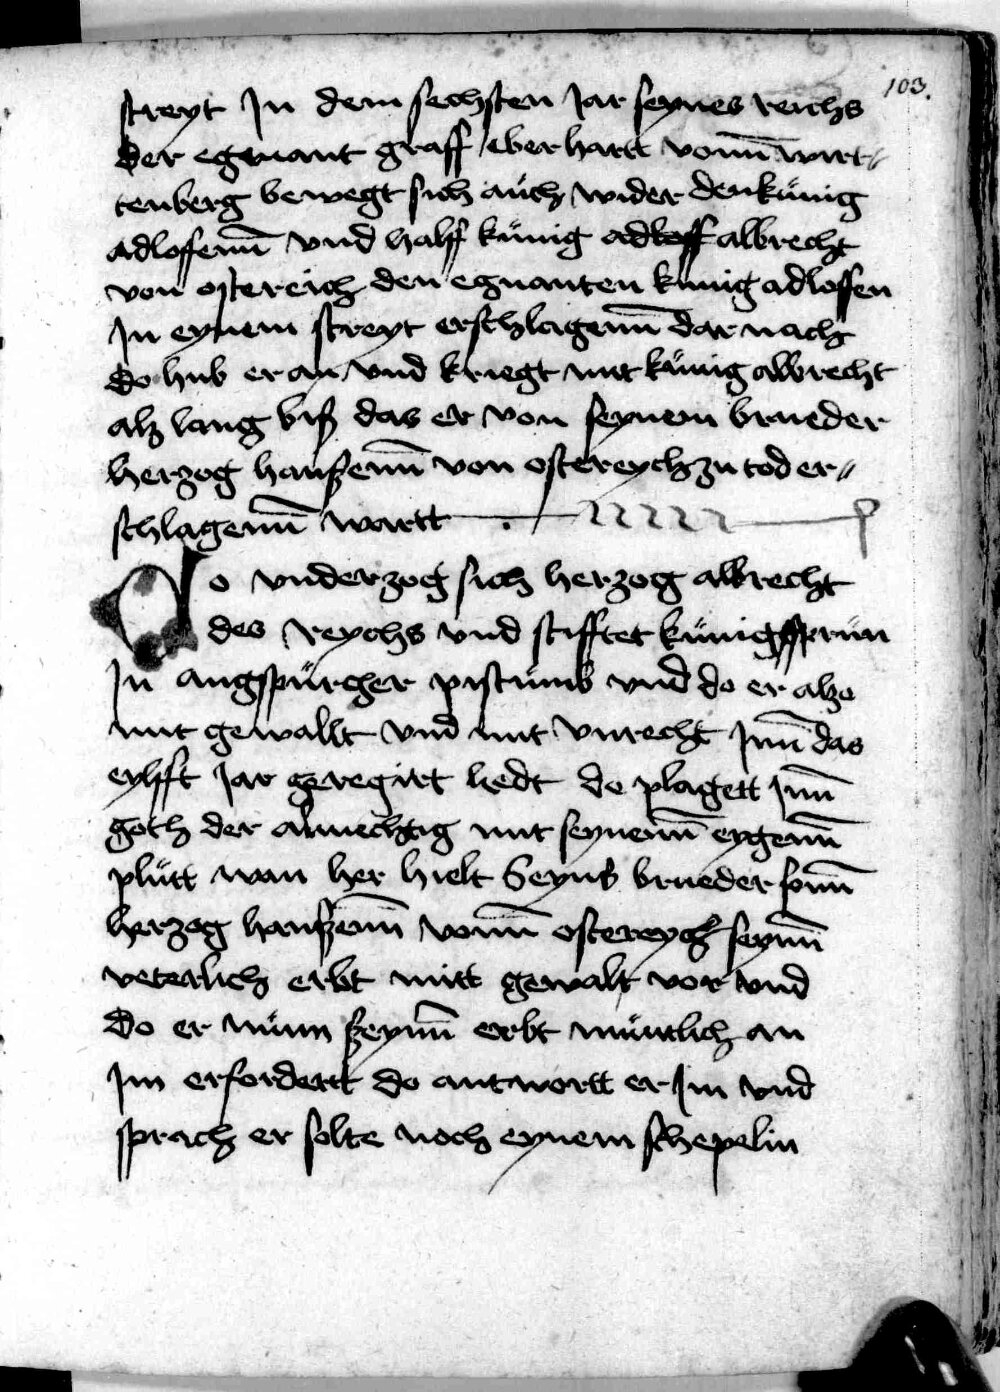 103.
streyt Jn dem sechsten Jar seynes reichs
der egenant graff eberhartt vonn̄ wirt⸗
tenberg bewegt sich aüch wider den künig
adloffenn̄ vnd halff künig adloff albrecht
von ostereich den egnanten künig adloffen
Jn eynem streyt erschlagenn̄ dar nach
do hub er an vnd kriegt mit künig albrecht
alz lang biß das er von seynem brueder
herzog hanßenn̄ von ostereych zu tod er⸗
schlagenn̄ wartt
Do vnderzog sich herzog albrecht
des reychs vnd stifftet künigsprün
Jn augspürcher pistumb vnd do er alzo
mit gewallt vnd mit vnrecht Jnn̄ das
eylfft Jar geregirt hedt do plagett Jnn̄
goth der almechtig mit seynenn̄ eygenn̄
plütt wan her hielt Seyns brueder sonn̄
herzog hanßenn̄ vonn̄ ostereych seynn̄
veterlich erbt mitt gewalt vor vnd
do er nünn ßeynn̄ erbt müntlich an
Jm erfordertt do antwortt er Jm vnd
sprach er solte noch eynem schepelin